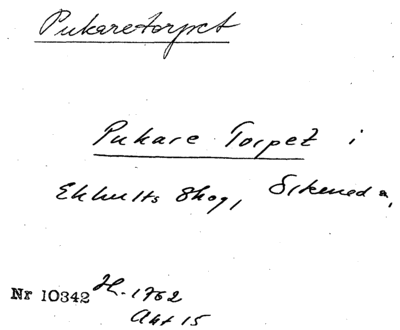 Pukaretorpet
Pukare Torpet i
Ekhults Skog, Slkened a,
Nr 10342 H. 1762
Akt 15